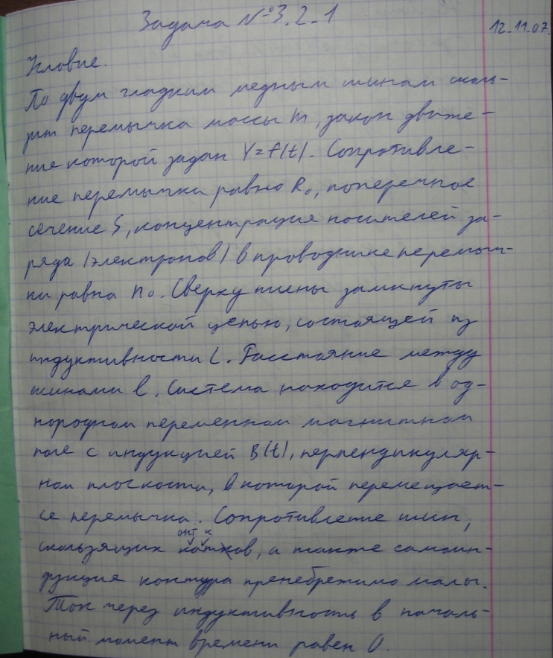 Задача №3.2-1
12.11.07
Условие.
По двум гладким медным шинам сколь-
зит перемычка массы m, закон движе-
ние которой задан Y=f(t). Сопротивле-
ние перемычки равно R₀, поперечное
сечение S, концентрация носителей за-
ряда (электронов) в проводнике перемыч-
ки равна n₀. Сверху шины замкнуты
электрической цепью, состоящей из
индуктивности L. Расстояние между
шинами l. Система находится в од-
нородном переменном магнитном
поле с индукцией B(t), перпендикуляр-
ном плоскости, в которой перемещает-
ся перемычка. Сопротивление шин,
скользящих контактов, а также самоин-
дукция контура пренебрежимо малы.
Ток через индуктивность в началь-
ный момент времени равен 0.